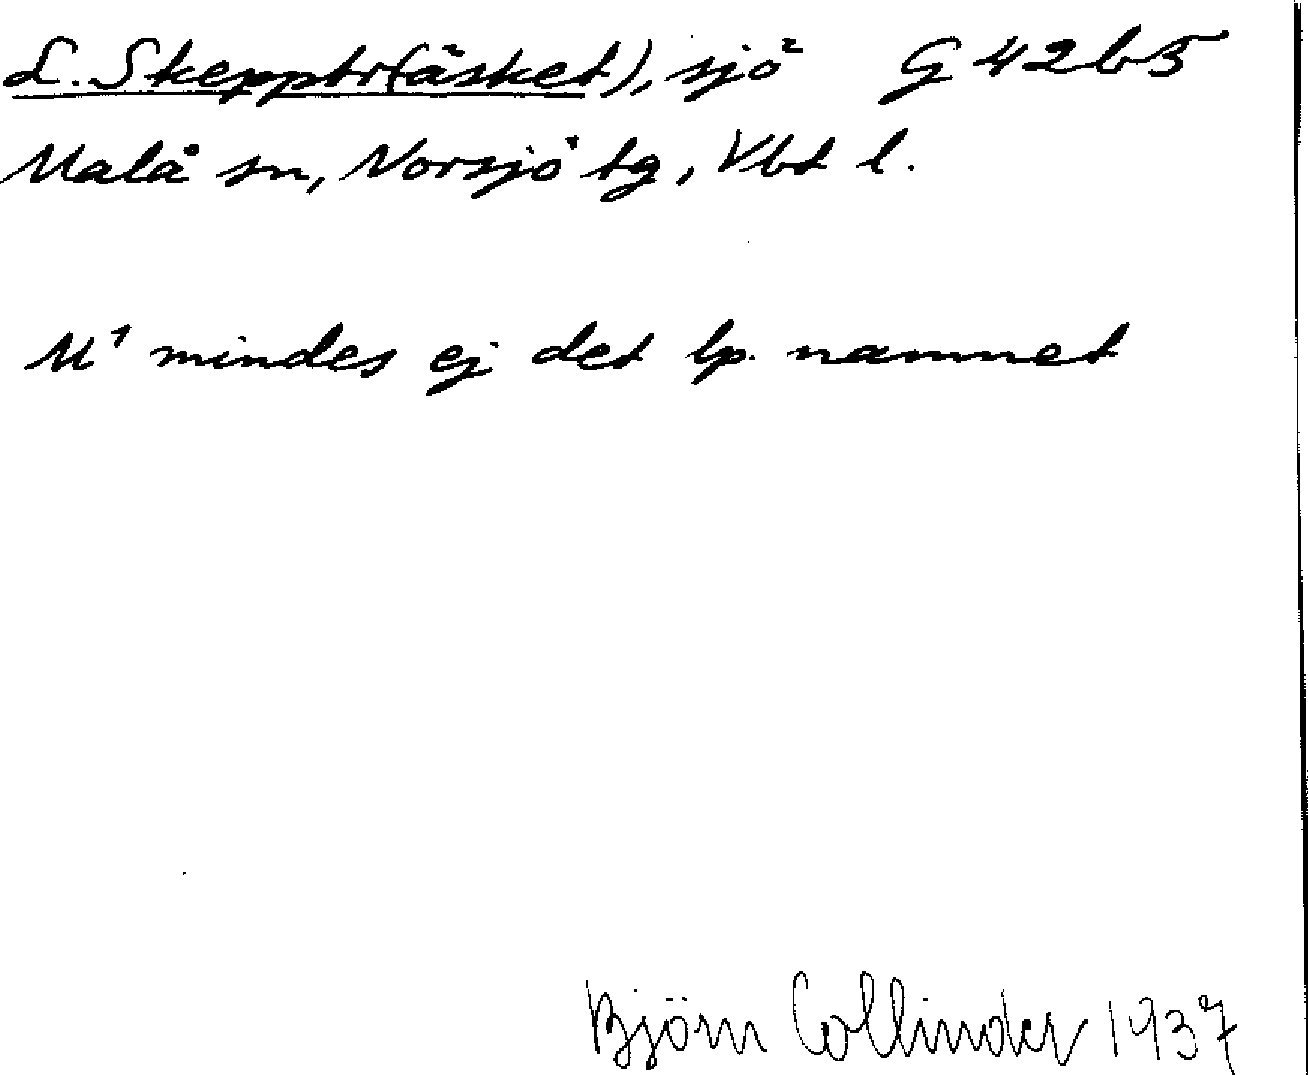 L. Skepptr(äsket), sjö G 42b5
Malå sn, Norsjö tg, Vbt l.
M¹ mindes ej det lp. namnet
Björn Collinder 1937